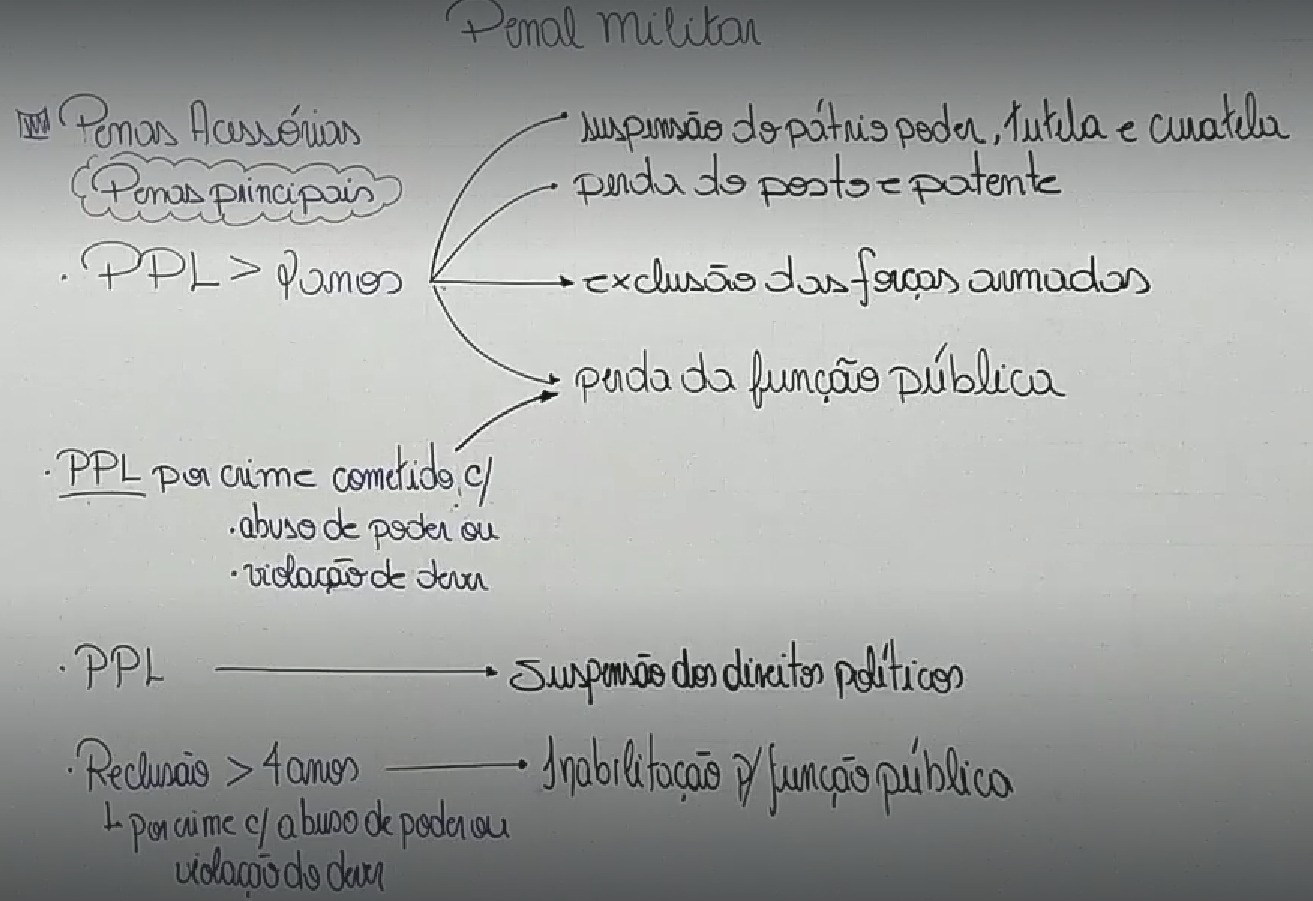 Penal Militar
Penas Acessórias
Penas principais
suspensão do pátrio poder, tutela e curatela
perda do posto e patente
. PPL > 2 anos
exclusão das forças armadas
perda da função pública
. PPL por crime cometido c/
. abuso de poder ou
. violação de dever
. PPL
suspensão dos direitos políticos
. Reclusão > 4 anos
Inabilitação p/ função pública
por crime c/ abuso de poder ou
violação do dever